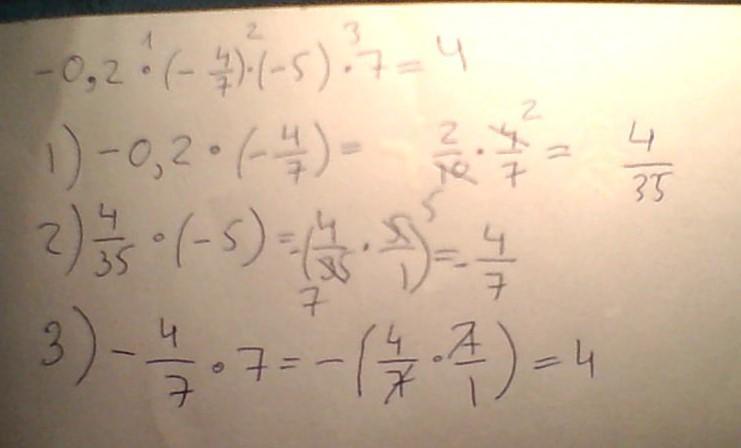 1 2 3
-0,2 · (- 4/7) · (-5) · 7 = 4
1) -0,2 · (- 4/7) = 2/10 · 4/7 2 = 4/35
5
2) 4/35 · (-5) = -(4/35 · 5/1) = - 4/7
7
3) - 4/7 · 7 = -(4/7 · 7/1) = 4